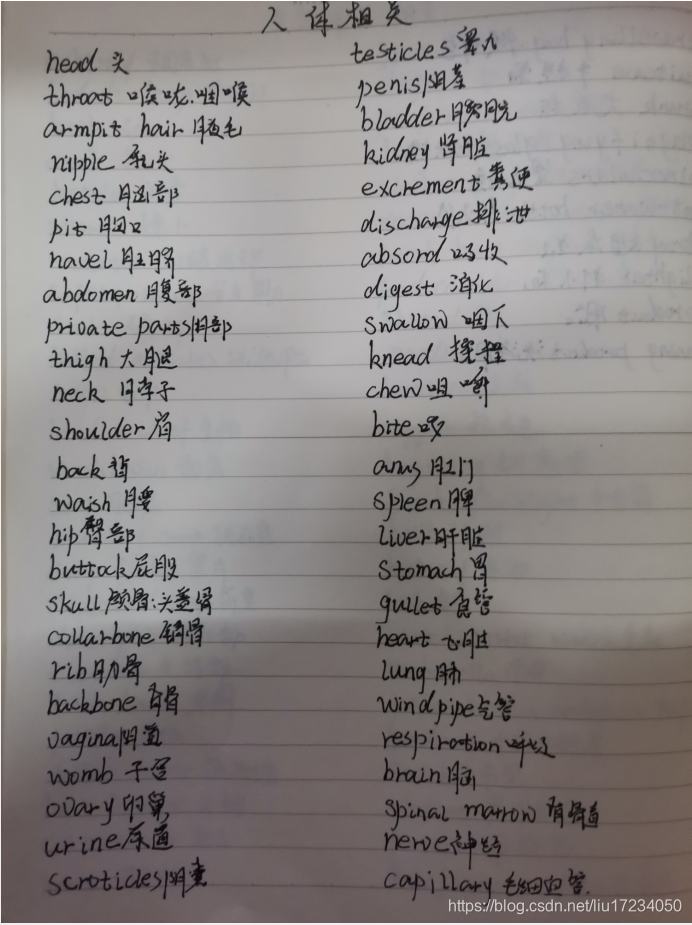 人体相关
head 头
throat 喉咙.咽喉
armpit hair 腋毛
nipple 乳头
chest 胸部
pit 胸口
navel 肚脐
abdomen 腹部
private parts 阴部
thigh 大腿
neck 脖子
shoulder 肩
back 背
waish 腰
hip 臀部
buttock 屁股
skull 颅骨;头盖骨
collarbone 锁骨
rib 肋骨
backbone 脊骨
vagina 阴道
womb 子宫
ovary 卵巢
urine 尿道
scroticles 阴囊
testicles 睾丸
penis 阴茎
bladder 膀胱
kidney 肾脏
excrement 粪便
discharge 排泄
absord 吸收
digest 消化
swallow 咽下
knead 揉捏
chew 咀嚼
bite 咬
anus 肛门
spleen 脾
liver 肝脏
stomach 胃
gullet 食管
heart 心脏
lung 肺
windpipe 气管
respiration 呼吸
brain 脑
spinal marrow 脊骨道
nerve 神经
capillary 毛细血管.
https://blog.csdn.net/liu17234050